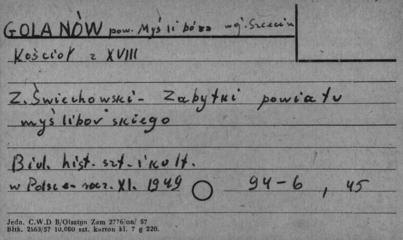 GOLANÓW pow. Myślibórz woj. Szczecin
Kościół z XVIII
Z. Świechowski - Zabytki powiatu
myśliborskiego
Biul. hist. szt. i kult.
w Polsce rocz. XI. 1949 94-6, 45
Jedn. C.W.D B/Olsztyn Zam 2776/on/ 57
Bltk. 2563/57 10.000 szt. karton kl. 7 g 220.